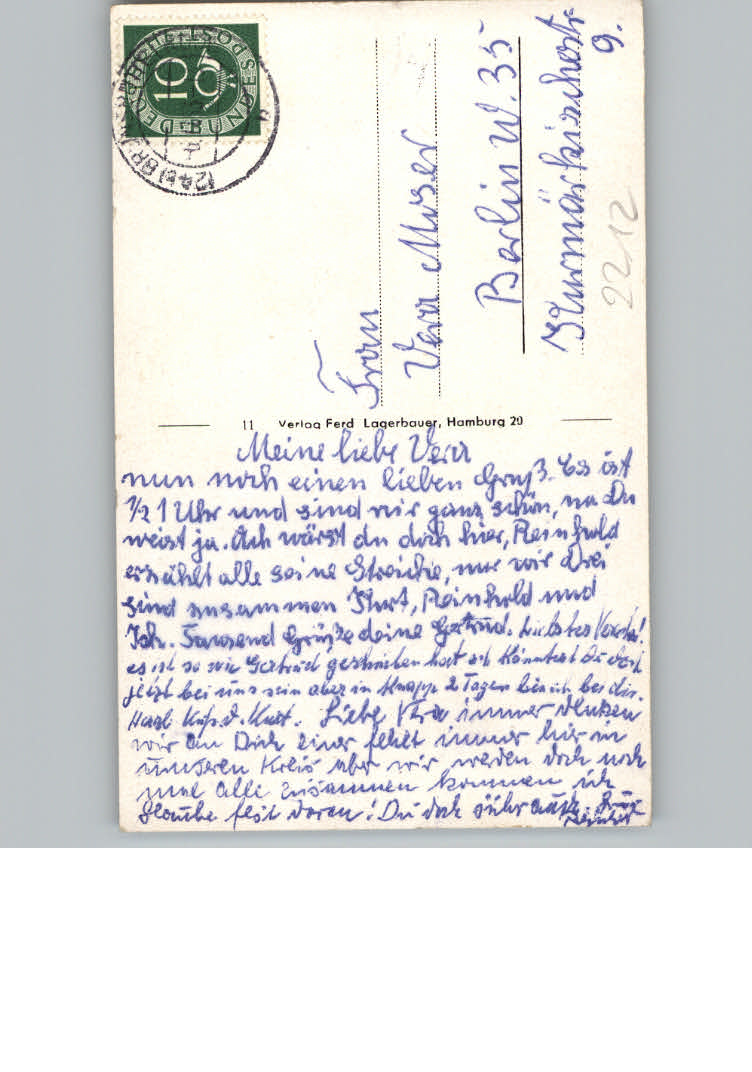 10
DEUTSCHE BUNDESPOST
Frau
Vera Moser
Berlin W. 35
Kurmärkischestr.
9.
2212
11 Verlag Ferd Lagerbauer, Hamburg 20
Meine liebe Vera
nun noch einen lieben Gruß. Es ist
1/2 1 Uhr und sind wir ganz schön, na Du
weist ja. Ach wärst du doch hier, Reinhold
erzählt alle seine Streiche, nur wir drei
sind zusammen Kurt, Reinhold und
Ich. Tausend Grüße deine Gertrud. Liebstes
es ist so wie Gertrud geschrieben hat ach könntest Du doch
jetzt bei uns sein aber in knapp 2 Tagen bin ich bei dir.
Kurt. Liebe Vera immer denken
wir an Dich einer fehlt immer hier in
unseren Kreis aber wir werden doch noch
mal alle zusammen kommen ich
glaube fest daran! Du doch